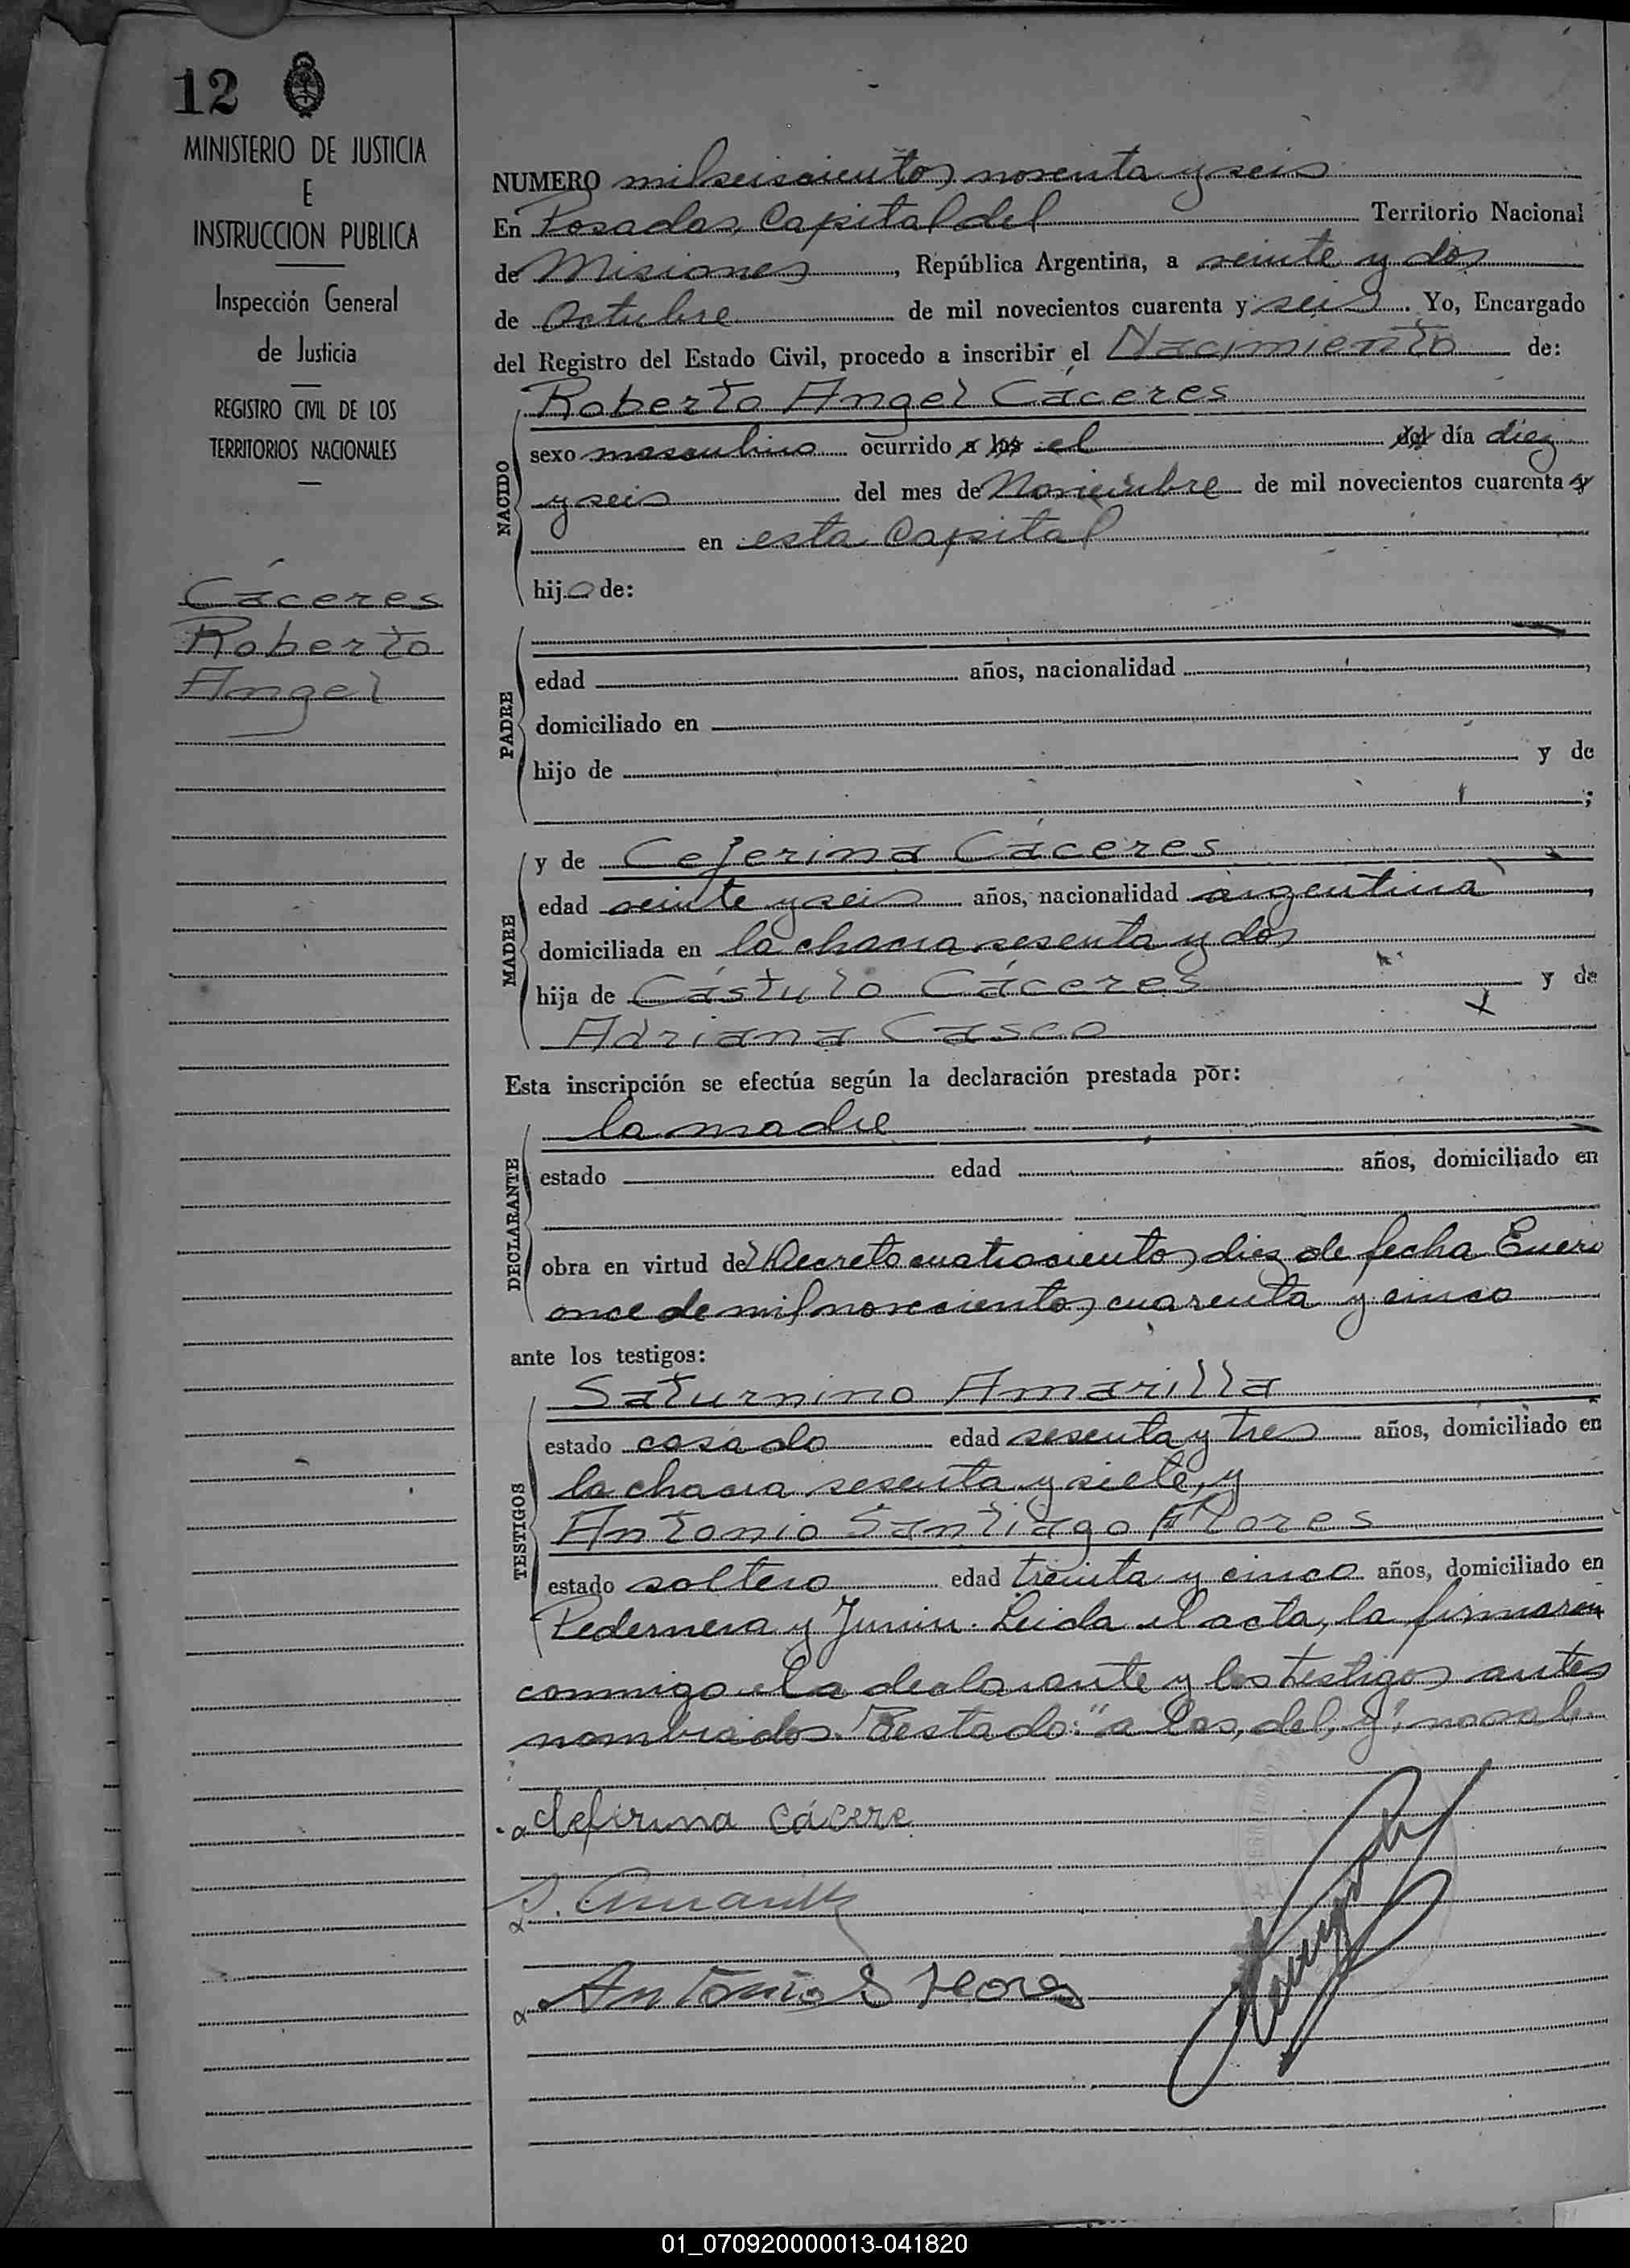 12
MINISTERIO DE JUSTICIA
E
INSTRUCCION PUBLICA
Inspección General
de Justicia
REGISTRO CIVIL DE LOS
TERRITORIOS NACIONALES
Cáceres
Roberto
Angel
NUMERO milseiscientos noventa y seis
En Posadas Capital del Territorio Nacional
de Misiones, República Argentina, a veinte y dos
de Octubre de mil novecientos cuarenta y seis. Yo, Encargado
del Registro del Estado Civil, procedo a inscribir el Nacimiento de:
NACIDO
Roberto Angel Cáceres
sexo masculino ocurrido a las el del día diez
y seis del mes de Noviembre de mil novecientos cuarenta y
en esta Capital
hijo de:
PADRE
edad años, nacionalidad ,
domiciliado en
hijo de y de
;
MADRE
y de Ceferina Cáceres
edad veinte y seis años, nacionalidad argentina,
domiciliada en la chacra sesenta y dos
hija de Cástulo Cáceres y de
Adriana Casco
Esta inscripción se efectúa según la declaración prestada por:
DECLARANTE
la madre
estado edad años, domiciliado en
obra en virtud del Decreto cuatrocientos diez de fecha Enero
once de mil novecientos cuarenta y cinco
ante los testigos:
TESTIGOS
Saturnino Amarilla
estado casado edad sesenta y tres años, domiciliado en
la chacra sesenta y siete, y
Antonio Santiago Flores
estado soltero edad treinta y cinco años, domiciliado en
Pedernera y Junin. Leida el acta, la firmaron
conmigo la declarante y los testigos antes
nombrados. Testado: "a las, del, y", no vale.
Ceferina Cácere
S. Amarilla
Antonio S Flores
01_070920000013-041820